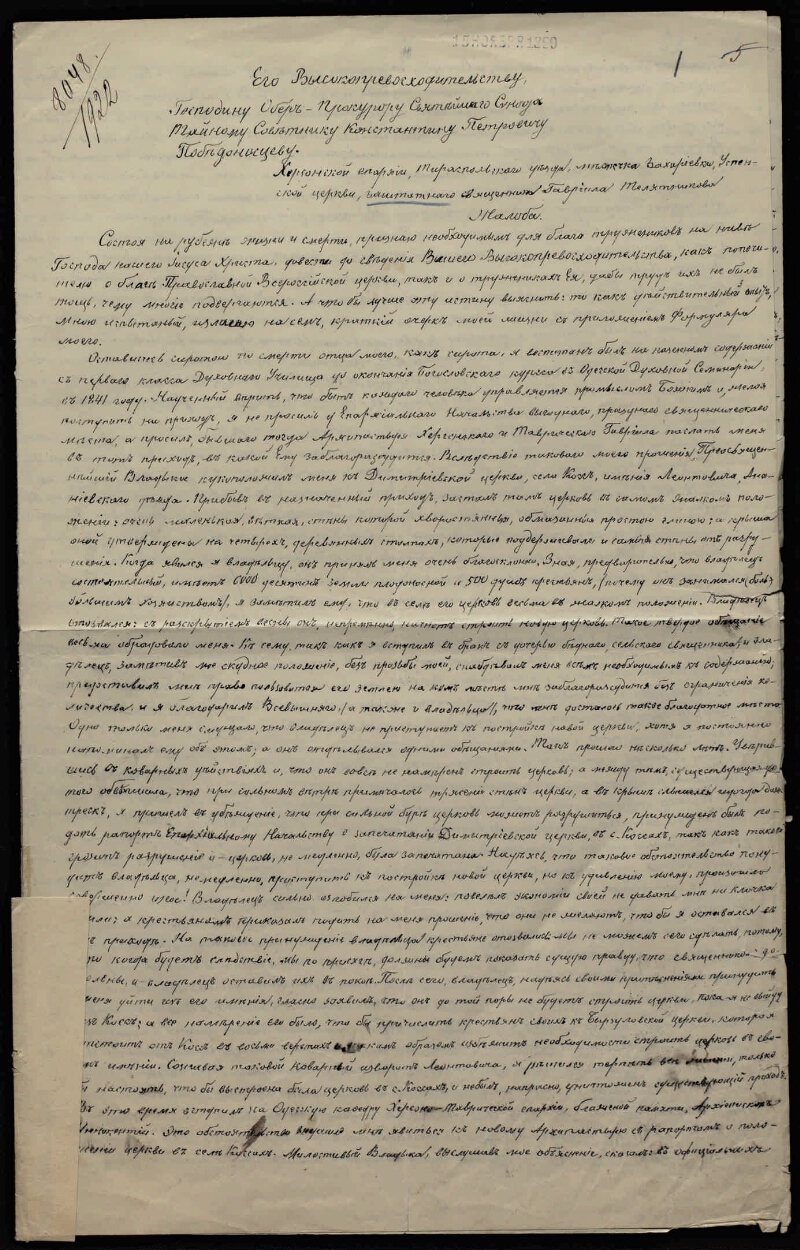 15 НОЯБРЯ 1880
1 5
8048/1922
Его Высокопревосходительству,
Господину Оберъ-Прокурору Святѣйшаго Сѵнода
Тайному Совѣтнику Константину Петровичу
Побѣдоносцеву.
Херсонской епархіи, Тираспольскаго уѣзда, мѣстечка Захарьевки, Успен-
ской церкви, заштатнаго священника Гавріила Телятникова
Жалоба.
Состоя на рубежѣ жизни и смерти, признаю необходимымъ для блага тружениковъ на нивѣ
Господа нашего Іисуса Христа, довести до свѣденія Вашего Высокопревосходительства, какъ попечи-
теля о благѣ Православной Всероссійской церкви, такъ и о труженикахъ Ея, дабы трудъ ихъ не былъ
тощъ, чему многіе подвергаются. А что бы лучше эту истину выяснить: то какъ дѣйствительный опытъ,
мною извѣстный, излагаю на семъ, краткій очеркъ моей жизни съ приложеніемъ Формуляра
моего.
Оставшись сиротою по смерти отца моего, какъ сирота, я воспитанъ былъ на казенномъ содержаніи
съ перваго класса Духовнаго Училища до окончанія Богословскаго курса въ Одесской Духовной Семинаріи,
въ 1841 году. Наученный вѣрить, что бытъ каждаго человѣка управляется промысломъ Божіимъ и, желая
поступить на приходъ, я не просилъ у Епархіальнаго Начальства выгоднаго, празднаго священническаго
мѣста, а просилъ, бывшаго тогда Архипастыря Херсонскаго и Таврическаго Гавріила послать меня
въ тотъ приходъ, въ какой Ему заблагоразсудится. Вслѣдствіе таковаго моего прошенія, Преосвящен-
нѣйшій Владыка рукоположилъ меня къ Димитріевской церкви, села Коссъ, имѣнія Леонтовича, Ана-
ньевскаго уѣзда. Прибывъ въ назначенный приходъ, засталъ тамъ церковь въ самомъ жалкомъ поло-
женіи: очень маленькая, ветхая, стѣны которой хворостяныя, обмазанныя простою глиною; а крыша
оной утверждена на четырехъ, деревянныхъ столпахъ, которые поддерживали и самыя стѣны отъ разру-
шенія. Когда явился я владѣльцу, онъ принялъ меня очень благосклонно. Зная, предварительно, что владѣлецъ
состоятельный, имѣетъ 6000 десятинъ земли плодоносной и 500 душъ крестьянъ, (почему и занимался боль-
большимъ хозяйствомъ), я замѣтилъ ему, что въ селѣ его церковь весьма въ жалкомъ положеніи. Владѣлецъ
отозвался: съ раскрытіемъ весны онъ, непремѣнно, начнетъ строить новую церковь. Такое твердое обѣщаніе
весьма обрадовало меня. Къ сему, такъ какъ я вступилъ въ бракъ съ дочерью бѣднаго, сельскаго священника; и вла-
дѣлецъ, замѣтивъ мое скудное положеніе, безъ прозьбы моей, снабдѣвалъ меня всѣмъ необходимымъ къ содержанію;
предоставилъ мнѣ право пользоватся его землею на комъ мѣстѣ мнѣ заблагоразсудится безъ ограниченія ко-
личества и я благодарилъ Всевышняго, (а также и владѣльца), что мнѣ досталось такое благодатное мѣсто.
Одно только меня смущало, что владѣлецъ не приступаетъ къ постройкѣ новой церкви, хотя я постоянно
напоминалъ ему объ этомъ; а онъ отдѣлывался одними обѣщаніями. Такъ прошло нѣсколько лѣтъ. Увѣрив-
шись въ коварныхъ дѣйствіяхъ и, что онъ вовсе не намѣренъ строить церковь; а между тѣмъ, существующая до
того обветшала, что при сильномъ вѣтрѣ примѣчалось тряженіе стѣнъ церкви, а въ крышѣ слышался иногда даже
трескъ, я пришелъ въ убѣжденіе, что при сильной бурѣ церковь можетъ разрушиться, принужденъ былъ по-
дать рапортъ Епархіальному Начальству о запечатаніи Димитріевской церкви, въ с. Коссахъ, такъ какъ таковой
грозитъ разрушеніе и церковь, не медленно, была запечатана. Надѣясь, что таковое обстоятельство пону-
дитъ владѣльца, немедленно, приступить къ постройкѣ новой церкви, но къ удивленію моему, произошло
совершенно иное! Владѣлецъ сильно озлобился на меня: повелѣлъ экономіи своей не давать мнѣ ни клочка
земли; а крестьянамъ приказалъ подать на меня прошеніе, что они не желаютъ, что бы я оставался въ
ихъ приходѣ. На таковое принужденіе владѣльца крестьяне отозвались: мы не можемъ сего сдѣлать, потому,
что когда будетъ слѣдствіе, мы по присягѣ, должны будемъ показать сущую правду, что священникомъ до-
вольны, и владѣлецъ оставилъ ихъ въ покоѣ. Послѣ сего, владѣлецъ, надѣясь своими притѣсненіями принудить
меня уйти изъ его имѣнія, гласно заявилъ, что онъ до той поры не будетъ строить церкви, пока я не выйду
изъ Коссъ, а все намѣреніе его было, что бы причислить крестьянъ своихъ къ Бирзуловской церкви, которая
отстоитъ отъ Коссъ въ восьми верстахъ и такимъ образомъ избѣжить необходимости строить церковь въ сво-
емъ имѣніи. Сознавая таковой коварный изворотъ Леонтовича, я рѣшился терпѣть все, только
настоять, что бы выстроена была церковь въ с. Коссахъ, и небылъ, напрасно, уничтоженъ существующій приходъ.
Въ это время вступилъ на Одесскую кафедру Херсоно-Таврической епархіи, блаженной памяти, Архіепископъ
Иннокентій. Это обстоятельство внушило мнѣ явиться къ новому Архипастырю съ рапортомъ о поло-
женіи церкви въ селѣ Коссахъ. Милостивый Владыка, выслушавъ мое объясненіе, сказалъ: въ официальныхъ